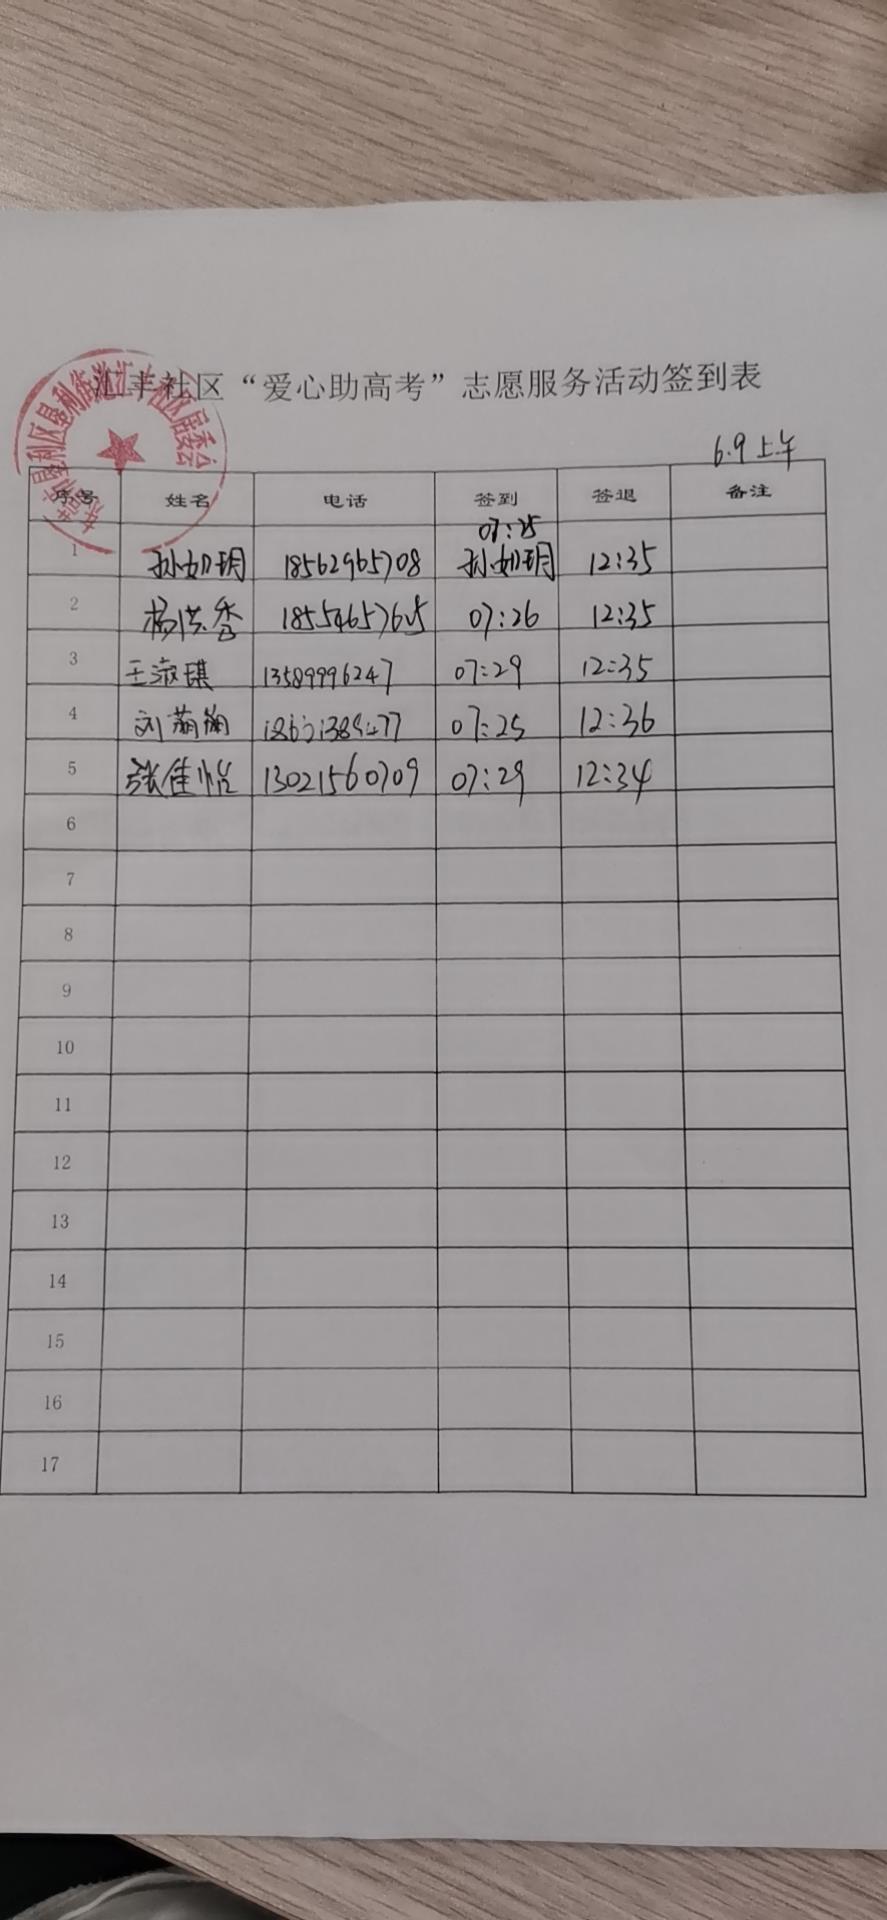 汇丰社区“爱心助高考”志愿服务活动签到表
6.9上午
序号 姓名 电话 签到 签退 备注
07:25
1 孙如玥 18562965708 孙如玥 12:35
2 杨洪秀 07:26 12:35
3 王淑琪 13589996247 07:29 12:35
4 刘 07:25 12:36
5 张佳怡 13021560709 07:29 12:34
6
7
8
9
10
11
12
13
14
15
16
17